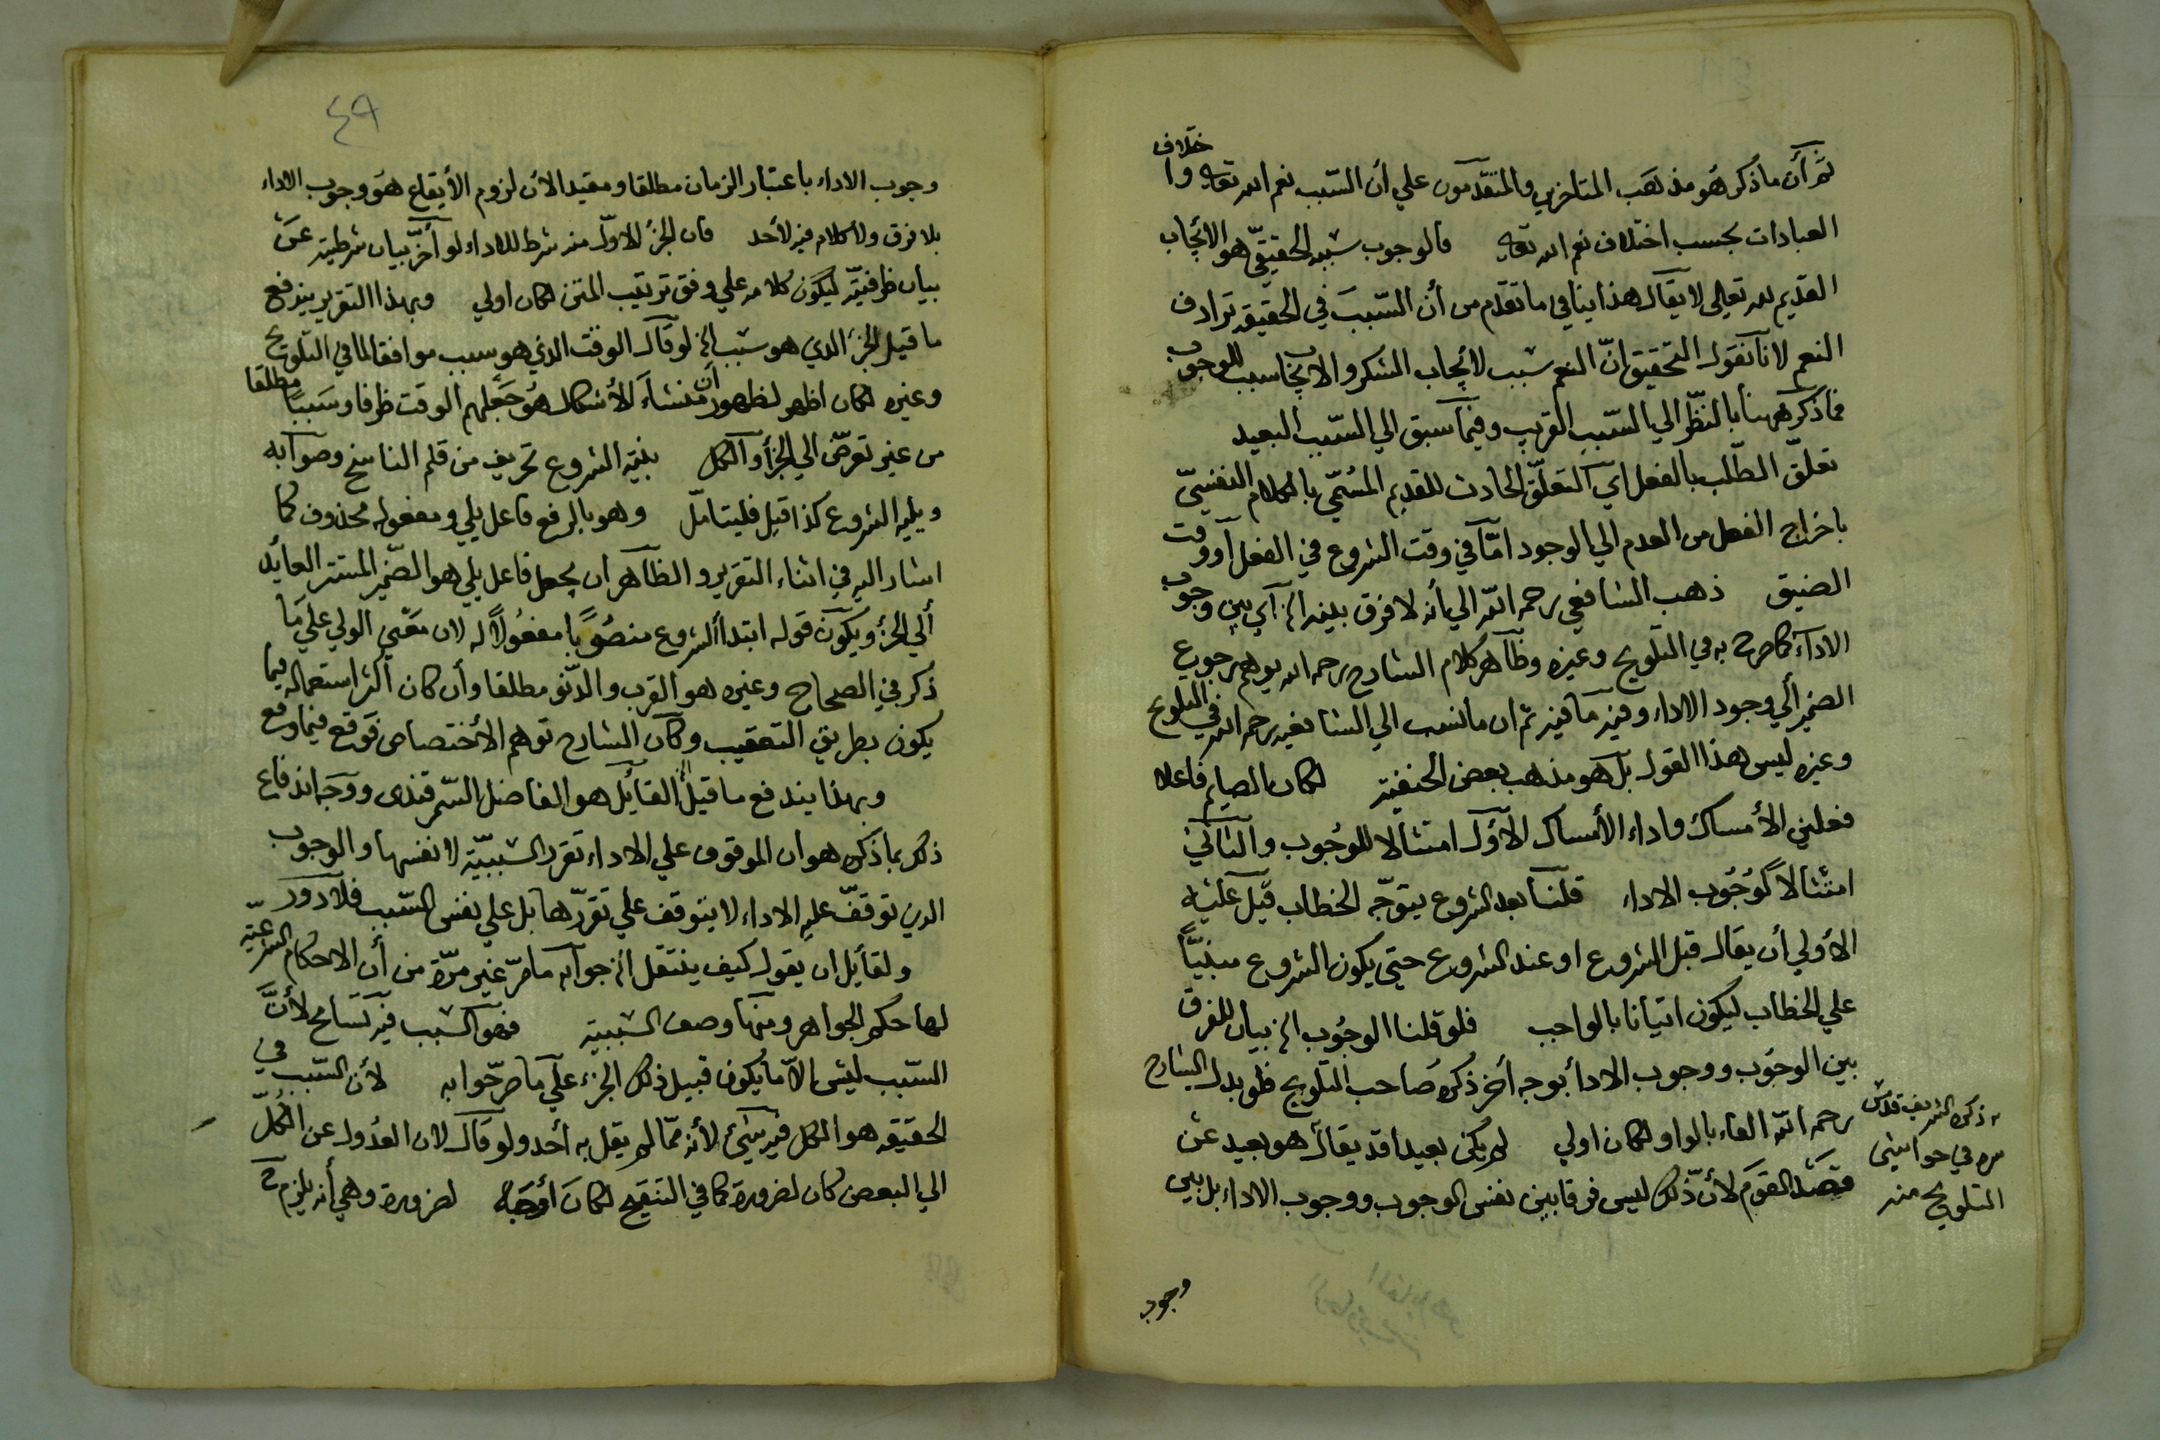 ثم أن ما ذكر هو مذهب المتأخرين والمتقدمون علي أن السبب نعم الله تعالي واختلاف
العبادات بحسب اختلاف نعم الله تعالي فالوجوب سببه الحقيقي هو الأيجاب
القديم لله تعالي لا يقال هذا ينافي ما تقدم من أن السبب في الحقيقة ترادف
النعم لانا نقول التحقيق انّ النعم سبب لأيجاب الشكر والايجاب سبب للوجوب
فما ذكر ههنا بالنظر الي السبب القريب وفيما سبق الي السبب البعيد
تعلق الطلب بالفعل اي التعلق الحادث للقديم المسمّي بالكلام النفسيّ
باخراج الفعل من العدم الي الوجود امّا في وقت الشروع في الفعل أو وقت
الضيق ذهب الشافعي رحمه الله الي أنه لا فرق بينه الخ أي بين وجوب
الاداء كما صرح به في التلويح وغيره وظاهر كلام الشارح رحمه الله يوهم رجوع
الضمير ألي وجود الاداء وفيه ما فيه ثم ان ما نسب الي الشافعي رحمه الله في التلويح
وغيره ليس هذا القول بل هو مذهب بعض الحنفية لكان الصايم فاعلا
فعلين الأمساك واداء الأمساك الأول امتثالا للوجوب والثاني
امتثالا لوجوب الاداء قلنا بعد الشروع يتوجّه الخطاب قيل عليه
الأولي أن يقال قبل الشروع او عند الشروع حتي يكون الشروع مبنيّا
علي الخطاب ليكون اتيانا بالواجب فلو قلنا الوجوب الخ بيان للفرق
بين الوجوب ووجوب الادأ بوجه أخر ذكره صاحب التلويح فلو بدل الشارح
رحمه الله الفاء بالواو لكان اولي لم يكن بعيدا قد يقال هو بعيد عن
قصد القوم لأن ذلك ليس فرقا بين نفس الوجوب ووجوب الاداء بل بين
ذكره الشريف قدس
سره في حواشي
التلويح منه
وجوب
٤٩
وجوب الاداء باعتبار الزمان مطلقا ومقيدا لأن لزوم الأيقاع هو وجوب الاداء
بلا فرق ولا كلام فيه لأحد فان الجزء الاول منه شرط للاداء لو أخّر بيان شرطيته عن
بيان ظرفيته ليكون كلامه علي وفق ترتيب المتن لكان اولي وبهذا التقرير يندفع
ما قيل الجزء الذي هو سبب الخ لو قال الوقت الذي هو سبب موافقا لما في التلويح
وغيره لكان اظهر لظهور أن منشاء الأشكال هو جعلهم الوقت ظرفا وسببا مطلقا
من غير تعرض الي الجزأ والكل بنية الشروع تحريف من قلم الناسخ وصوابه
ويليه الشروع كذا قيل فليتأمل وهو بالرفع فاعل يلي ومفعوله محذوف كما
اشار اليه في اثناء التقرير والظاهر ان يجعل فاعل يلي هو الضمير المستتر العايد
ألي الجزء ويكون قوله ابتداء الشروع منصوبا مفعولا له لان معني الولي علي ما
ذكر في الصحاح وغيره هو القرب والدنو مطلقا وأن كان اكثر استعماله فيما
يكون بطريق التعقيب وكان الشارح توهم الأختصاص فوقع فيما وقع
وبهذا يندفع ما قيل القايل هو الفاضل السمرقندى ووجه اندفاع
ذلك بما ذكره هو ان الموقوف علي الاداء تقرر السببيّة لا نفسها والوجوب
الذي توقف عليه الاداء لا يتوقف علي تقررها بل علي نفس السبب فلا دور
ولقأيل ان يقول كيف ينتقل الخ جوابه ما مرّ غير مرّة من أن الاحكام الشرعيّة
لها حكم الجواهر ومنها وصف السببية فهو السبب فيه تسامح لأنّ
السبب ليس الا ما يكون قبيل ذلك الجزء علي ما صرّحوا به لأن السبب في
الحقيقه هو الكل فيه شيء لأنه ممّا لم يقل به أحد ولو قال لان العدول عن الكلّ
الي البعض كان لضرورة كما في التنقيح لكان أوجه لضرورة وهي أنه يلزم ح